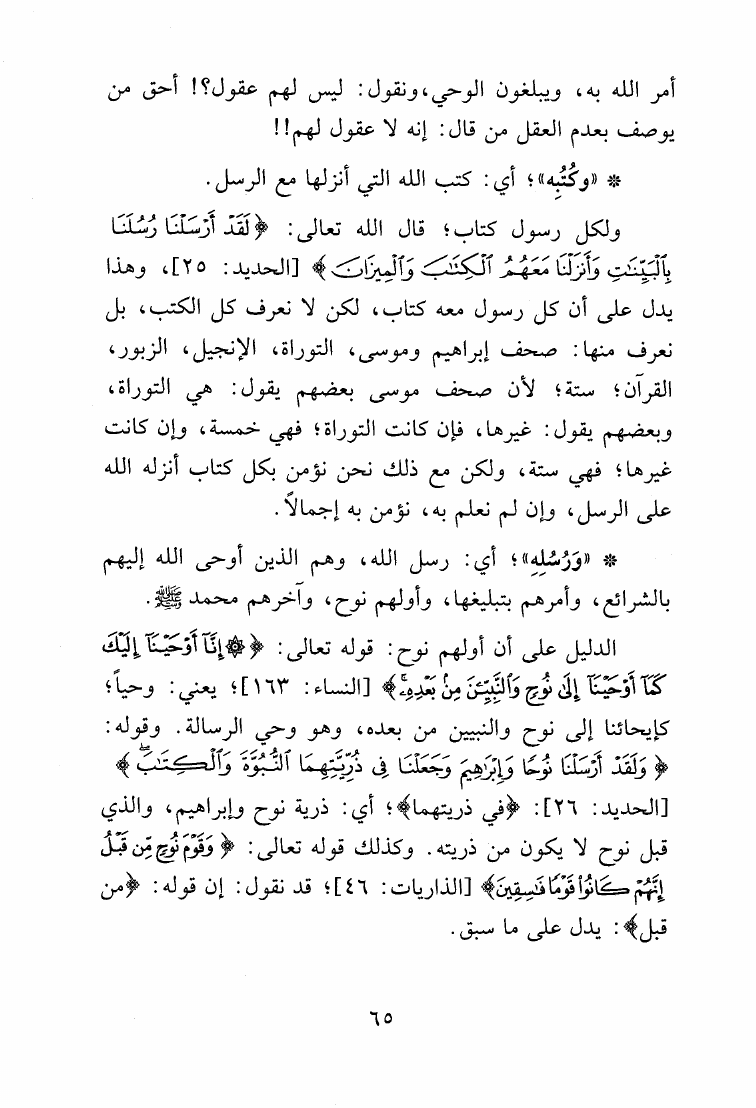 أمر الله به، ويبلغون الوحي، ونقول: ليس لهم عقول؟! أحق من
يوصف بعدم العقل من قال: إنه لا عقول لهم!!
* «وكُتُبِه»؛ أي: كتب الله التي أنزلها مع الرسل.
ولكل رسول كتاب؛ قال الله تعالى: ﴿لَقَدْ أَرْسَلْنَا رُسُلَنَا
بِٱلْبَيِّنَٰتِ وَأَنزَلْنَا مَعَهُمُ ٱلْكِتَٰبَ وَٱلْمِيزَانَ﴾ [الحديد: ٢٥]، وهذا
يدل على أن كل رسول معه كتاب، لكن لا نعرف كل الكتب، بل
نعرف منها: صحف إبراهيم وموسى، التوراة، الإنجيل، الزبور،
القرآن؛ ستة؛ لأن صحف موسى بعضهم يقول: هي التوراة،
وبعضهم يقول: غيرها، فإن كانت التوراة؛ فهي خمسة، وإن كانت
غيرها؛ فهي ستة، ولكن مع ذلك نحن نؤمن بكل كتاب أنزله الله
على الرسل، وإن لم نعلم به، نؤمن به إجمالاً.
* «وَرُسُلِهِ»؛ أي: رسل الله، وهم الذين أوحى الله إليهم
بالشرائع، وأمرهم بتبليغها، وأولهم نوح، وآخرهم محمد ﷺ.
الدليل على أن أولهم نوح: قوله تعالى: ﴿۞ إِنَّآ أَوْحَيْنَآ إِلَيْكَ
كَمَآ أَوْحَيْنَآ إِلَىٰ نُوحٍ وَٱلنَّبِيِّـۧنَ مِنۢ بَعْدِهِۦۚ﴾ [النساء: ١٦٣]؛ يعني: وحياً؛
كإيحائنا إلى نوح والنبيين من بعده، وهو وحي الرسالة. وقوله:
﴿وَلَقَدْ أَرْسَلْنَا نُوحًا وَإِبْرَٰهِيمَ وَجَعَلْنَا فِى ذُرِّيَّتِهِمَا ٱلنُّبُوَّةَ وَٱلْكِتَٰبَۖ﴾
[الحديد: ٢٦]: ﴿في ذريتهما﴾؛ أي: ذرية نوح وإبراهيم، والذي
قبل نوح لا يكون من ذريته. وكذلك قوله تعالى: ﴿وَقَوْمَ نُوحٍ مِّن قَبْلُ
إِنَّهُمْ كَانُوا۟ قَوْمًا فَٰسِقِينَ﴾ [الذاريات: ٤٦]؛ قد نقول: إن قوله: ﴿من
قبل﴾: يدل على ما سبق.
٦٥